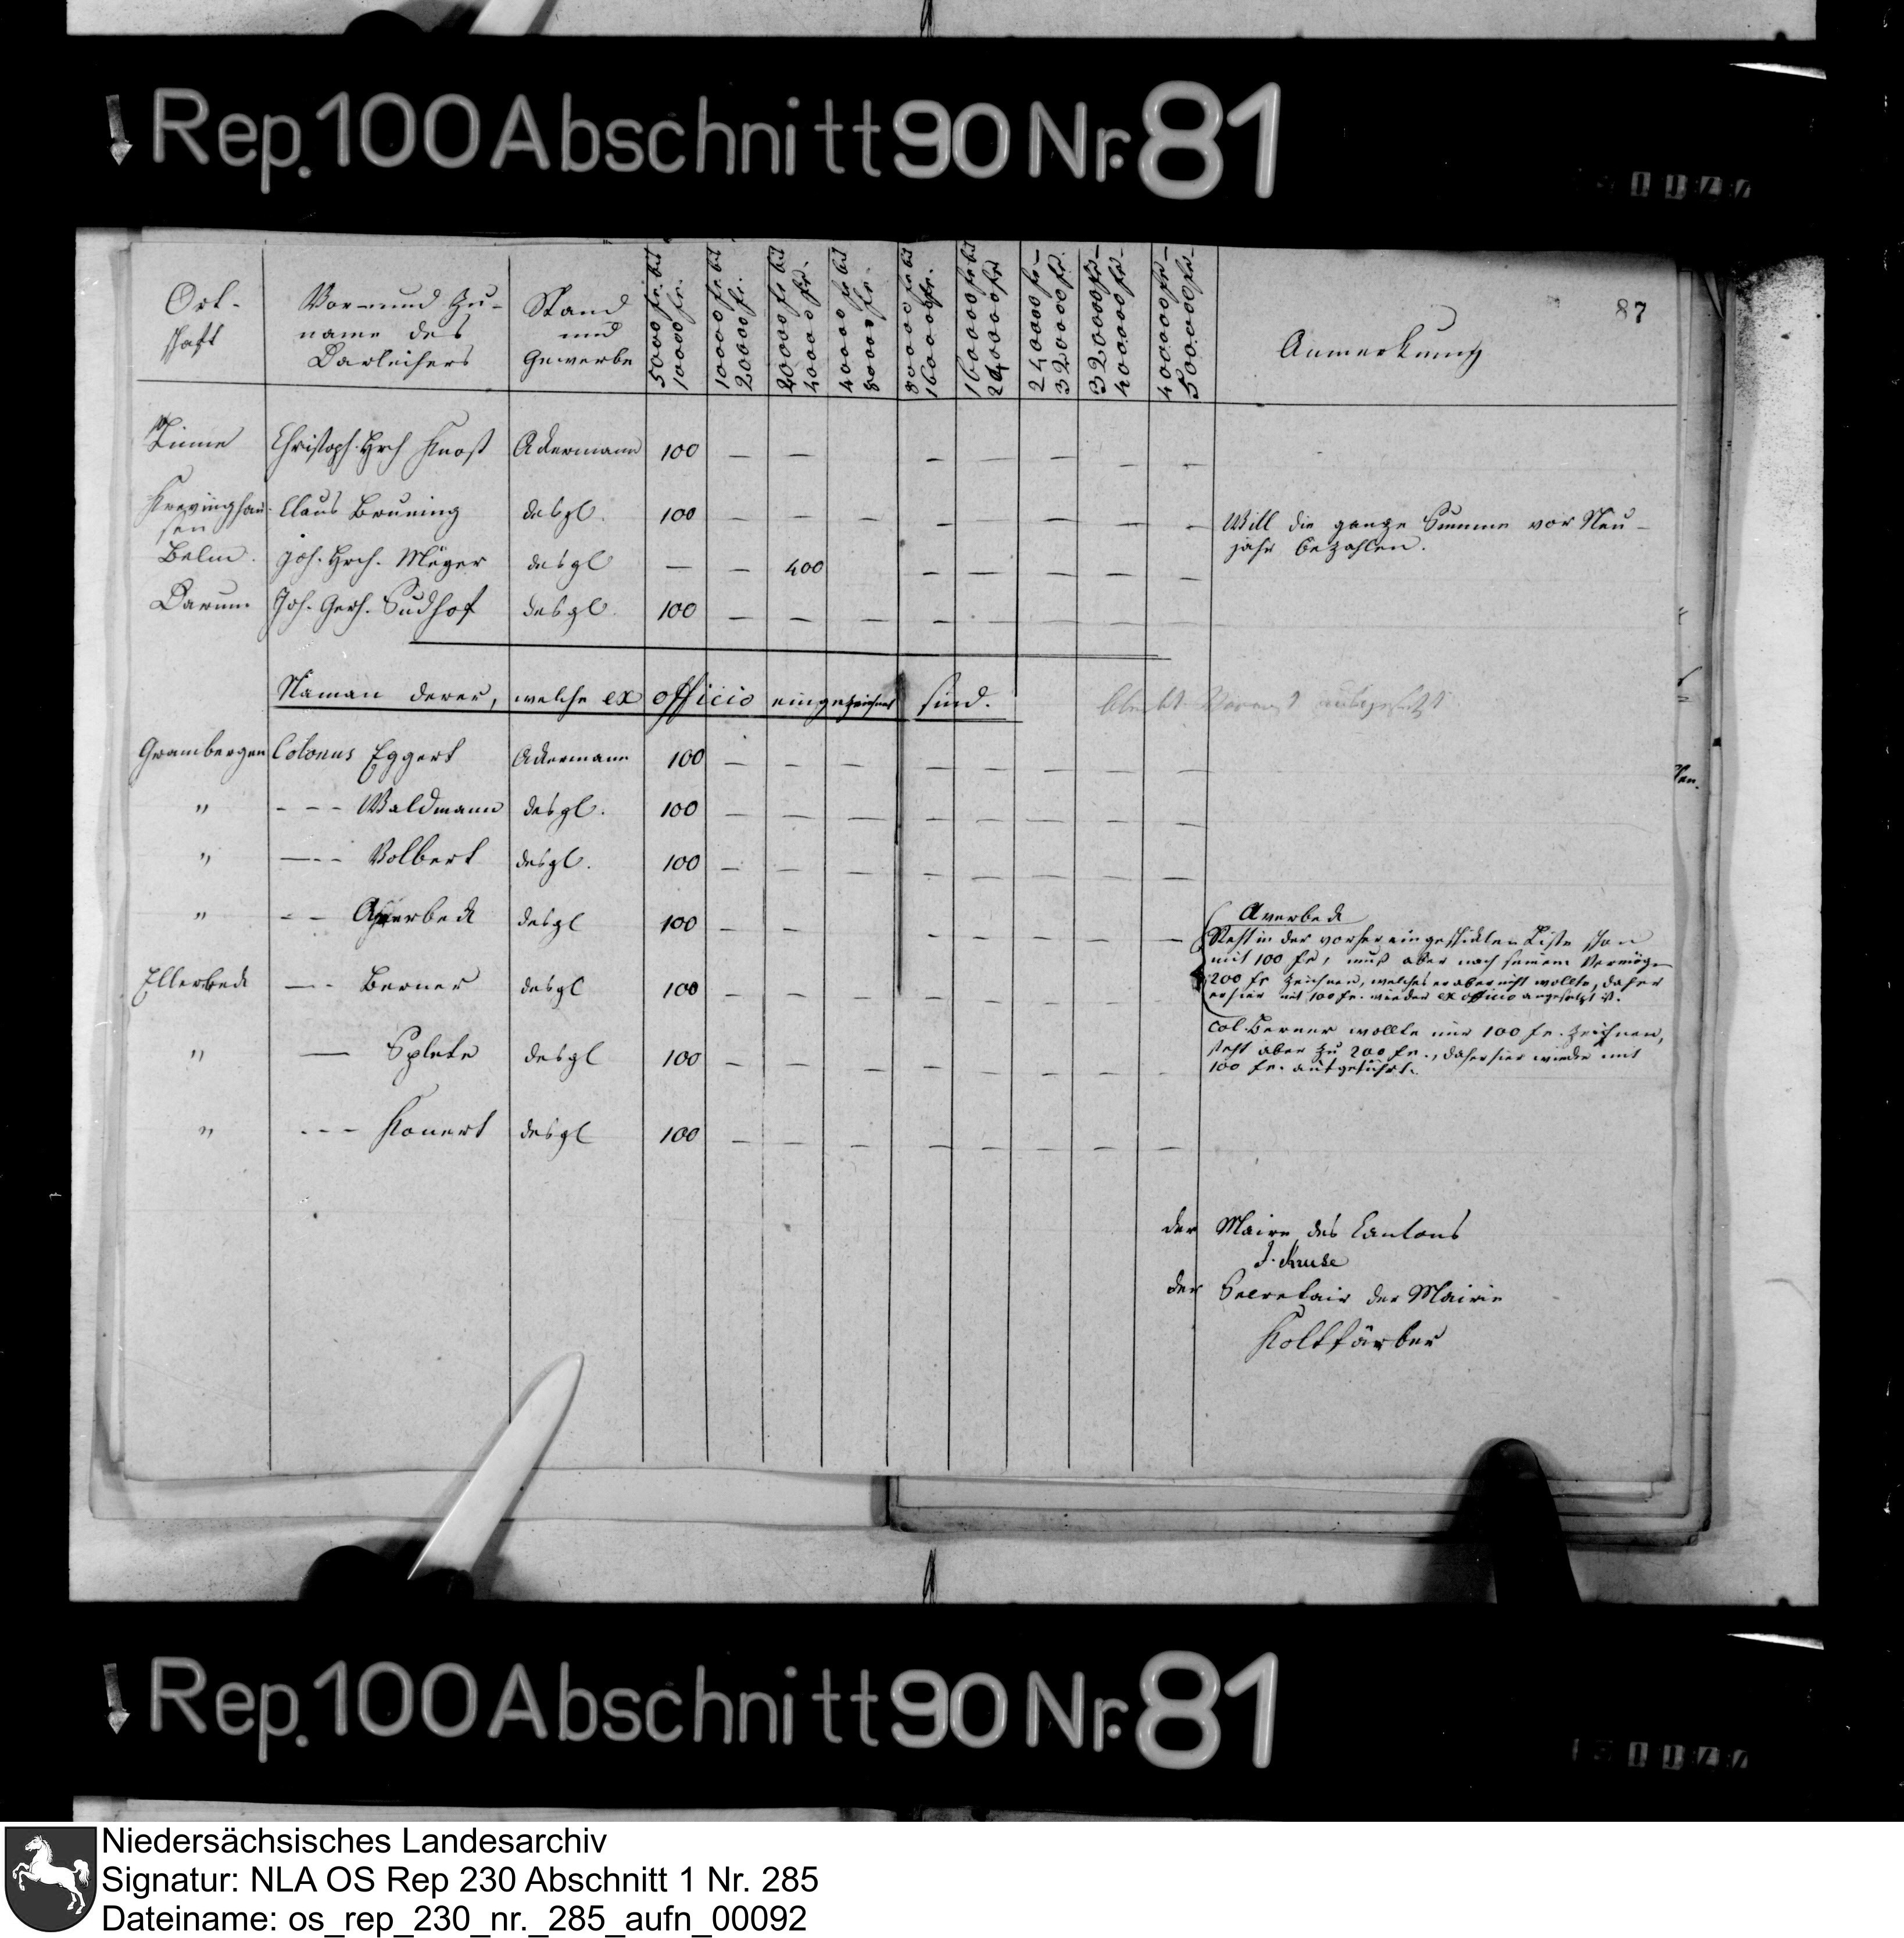 Rep. 100 Abschnitt 90 Nr. 81
87
Ort-
schaft
Vor- und Zu-
name des
Darleihers
Stand
und
Gewerbe
5000 fr. bis
10000 fr.
10000 fr. bis
20000 fr.
20000 fr. bis
40000 fr.
40000 fr. bis
80000 fr.
80000 fr. bis
160000 fr.
160000 fr. bis
240000 fr.
240000 fr. –
320000 fr.
320000 fr. –
400000 fr. –
400000 fr. –
500000 fr. –
Anmerkung
Linne Christoph Hrch Knost Ackermann 100 — — — — — — —
Krevinghau-
sen Claus Bruning desgl. 100 — — — — — — — —
Will die ganze Summe vor Neu-
jahr bezahlen.
Belm. Joh. Hrch. Meyer desgl — — 400 — — — — —
Darum Joh. Gerh. Sudhof desgl. 100 — — — — — — — —
Namen derer, welche ex officio eingezeichnet sind.
Grambergen Colonus Eggert Ackermann 100 — — — — — — — —
" - - - Waldmann desgl. 100 — — — — — — — —
" — - - Volbert desgl. 100 — — — — — — — —
" - - Averbeck desgl 100 — — — — — — —
Averbeck
Steht in der vorher eingeschickten Liste schon
mit 100 fr, muß aber nach seinem Vermögen
200 fr zeichnen, welches er aber nicht wollte, daher
er hier mit 100 fr. wieder ex officio angesetzt ist.
Ellerbeck — - Berner desgl 100 — — — — — — — —
Col. Berner wollte nur 100 fr. zeichnen,
steht aber zu 200 fr., daher hier wieder mit
100 fr. aufgeführt.
" — Splete desgl 100 — — — — — — — —
" - - - Konert desgl 100 — — — — — — — —
der Maire des Cantons
J. Kruse
der Secretair der Mairie
Holtfärber
Rep. 100 Abschnitt 90 Nr. 81
Niedersächsisches Landesarchiv
Signatur: NLA OS Rep 230 Abschnitt 1 Nr. 285
Dateiname: os_rep_230_nr._285_aufn_00092